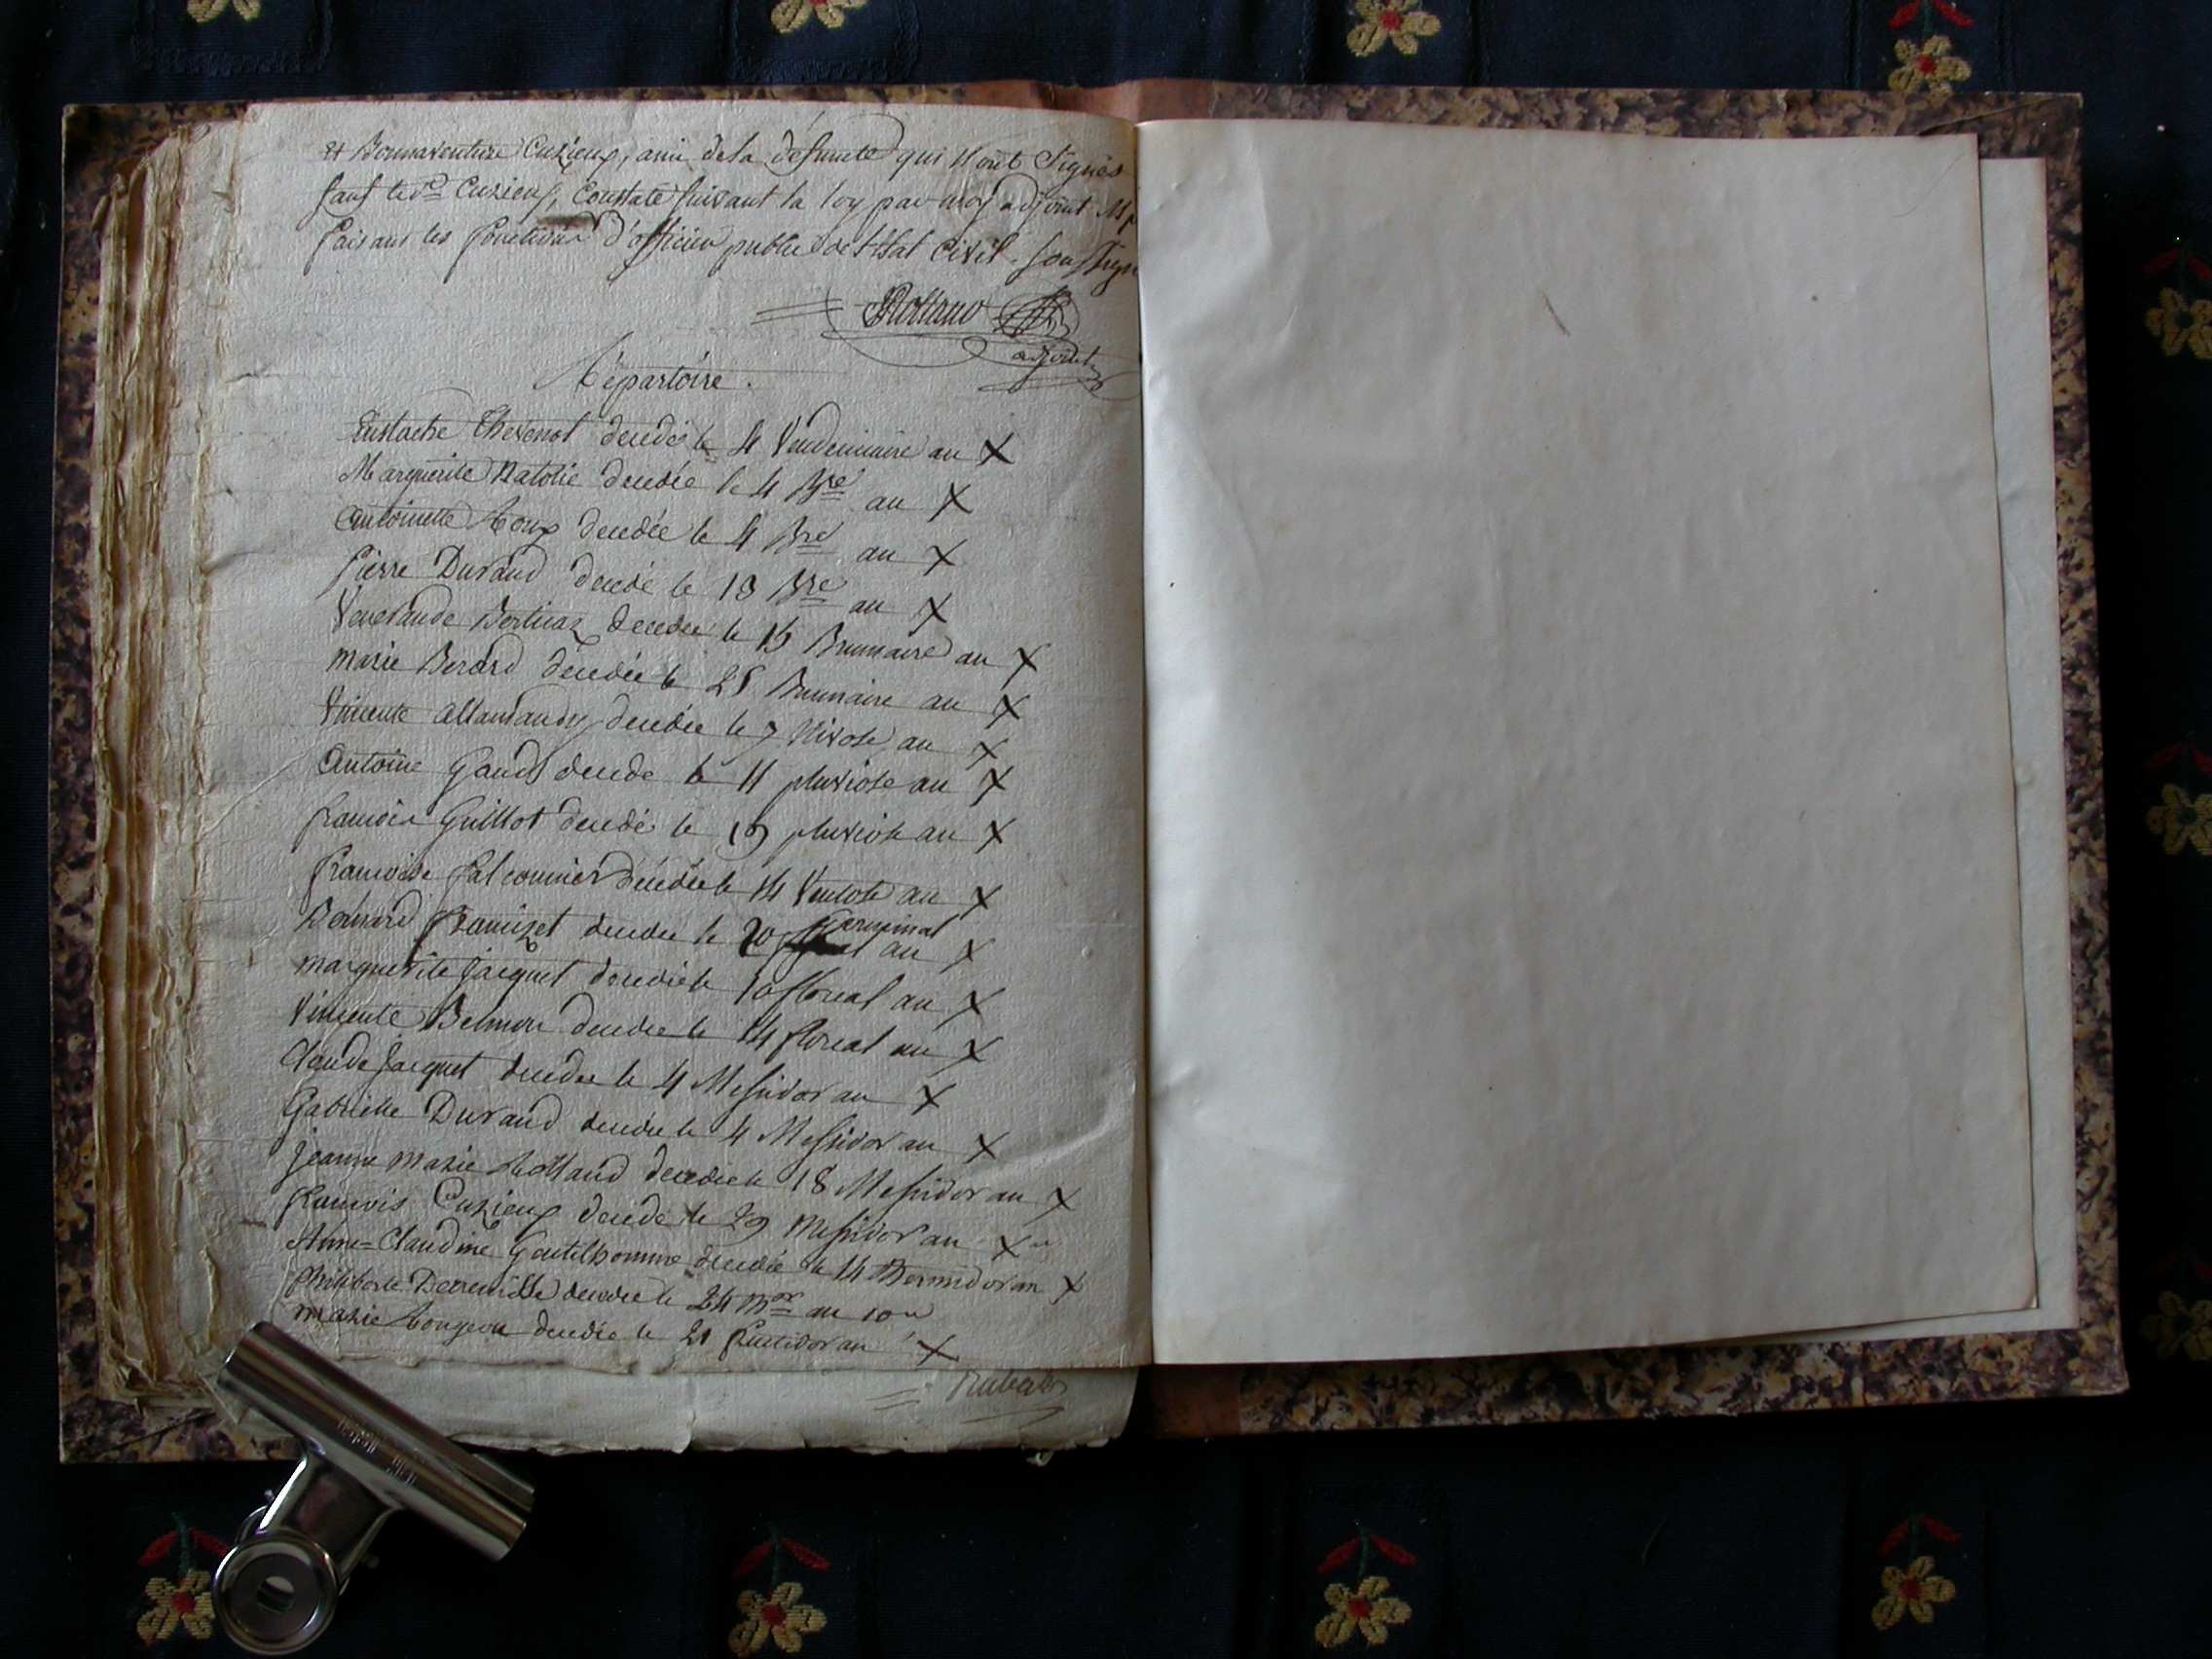 et Bonnaventure Cuzieux, ami de la défunte qui n'ont signés
sauf le dt Cuzieux, Constaté suivant la loy par moy adjoint
faisant les fonctions d'officier public de l'état civil. soussigné
Rolland
adjoint
Répartoire.
Eustache Thevenot decedé le 4 Vendemiaire an X
Marguerite Natolie decedée le 4 Bre an X
Antoinette Roux decedée le 4 Bre an X
pierre Durand decedé le 13 Bre an X
Venerande Bertucat decedée le 15 Brumaire an X
Marie Berard decedée le 25 Brumaire an X
Vincente decedée le 7 Nivose an X
Antoine Gaud decede le 11 pluviose an X
francois Guillot decedé le 19 pluviose an X
francoise falconnier décédée le 14 Ventose an X
Bernard decedee le 20 Germinal an X
marguerite Jacquet decedée le 10 floreal an X
Vincente decedee le 14 floreal an X
Claude Jacquet decedee le 4 Messidor an X
Gabrielle Durand decedee le 4 Messidor an X
Jeanne Marie Rolland decedée le 18 Messidor an X
francois Cuzieux decede le 29 Messidor an X
Anne=Claudine Gentilhomme decedée le 14 Thermidor an X
philiberte decedee le 24 Mor an 10e
Marie decedée le 21 fructidor an X